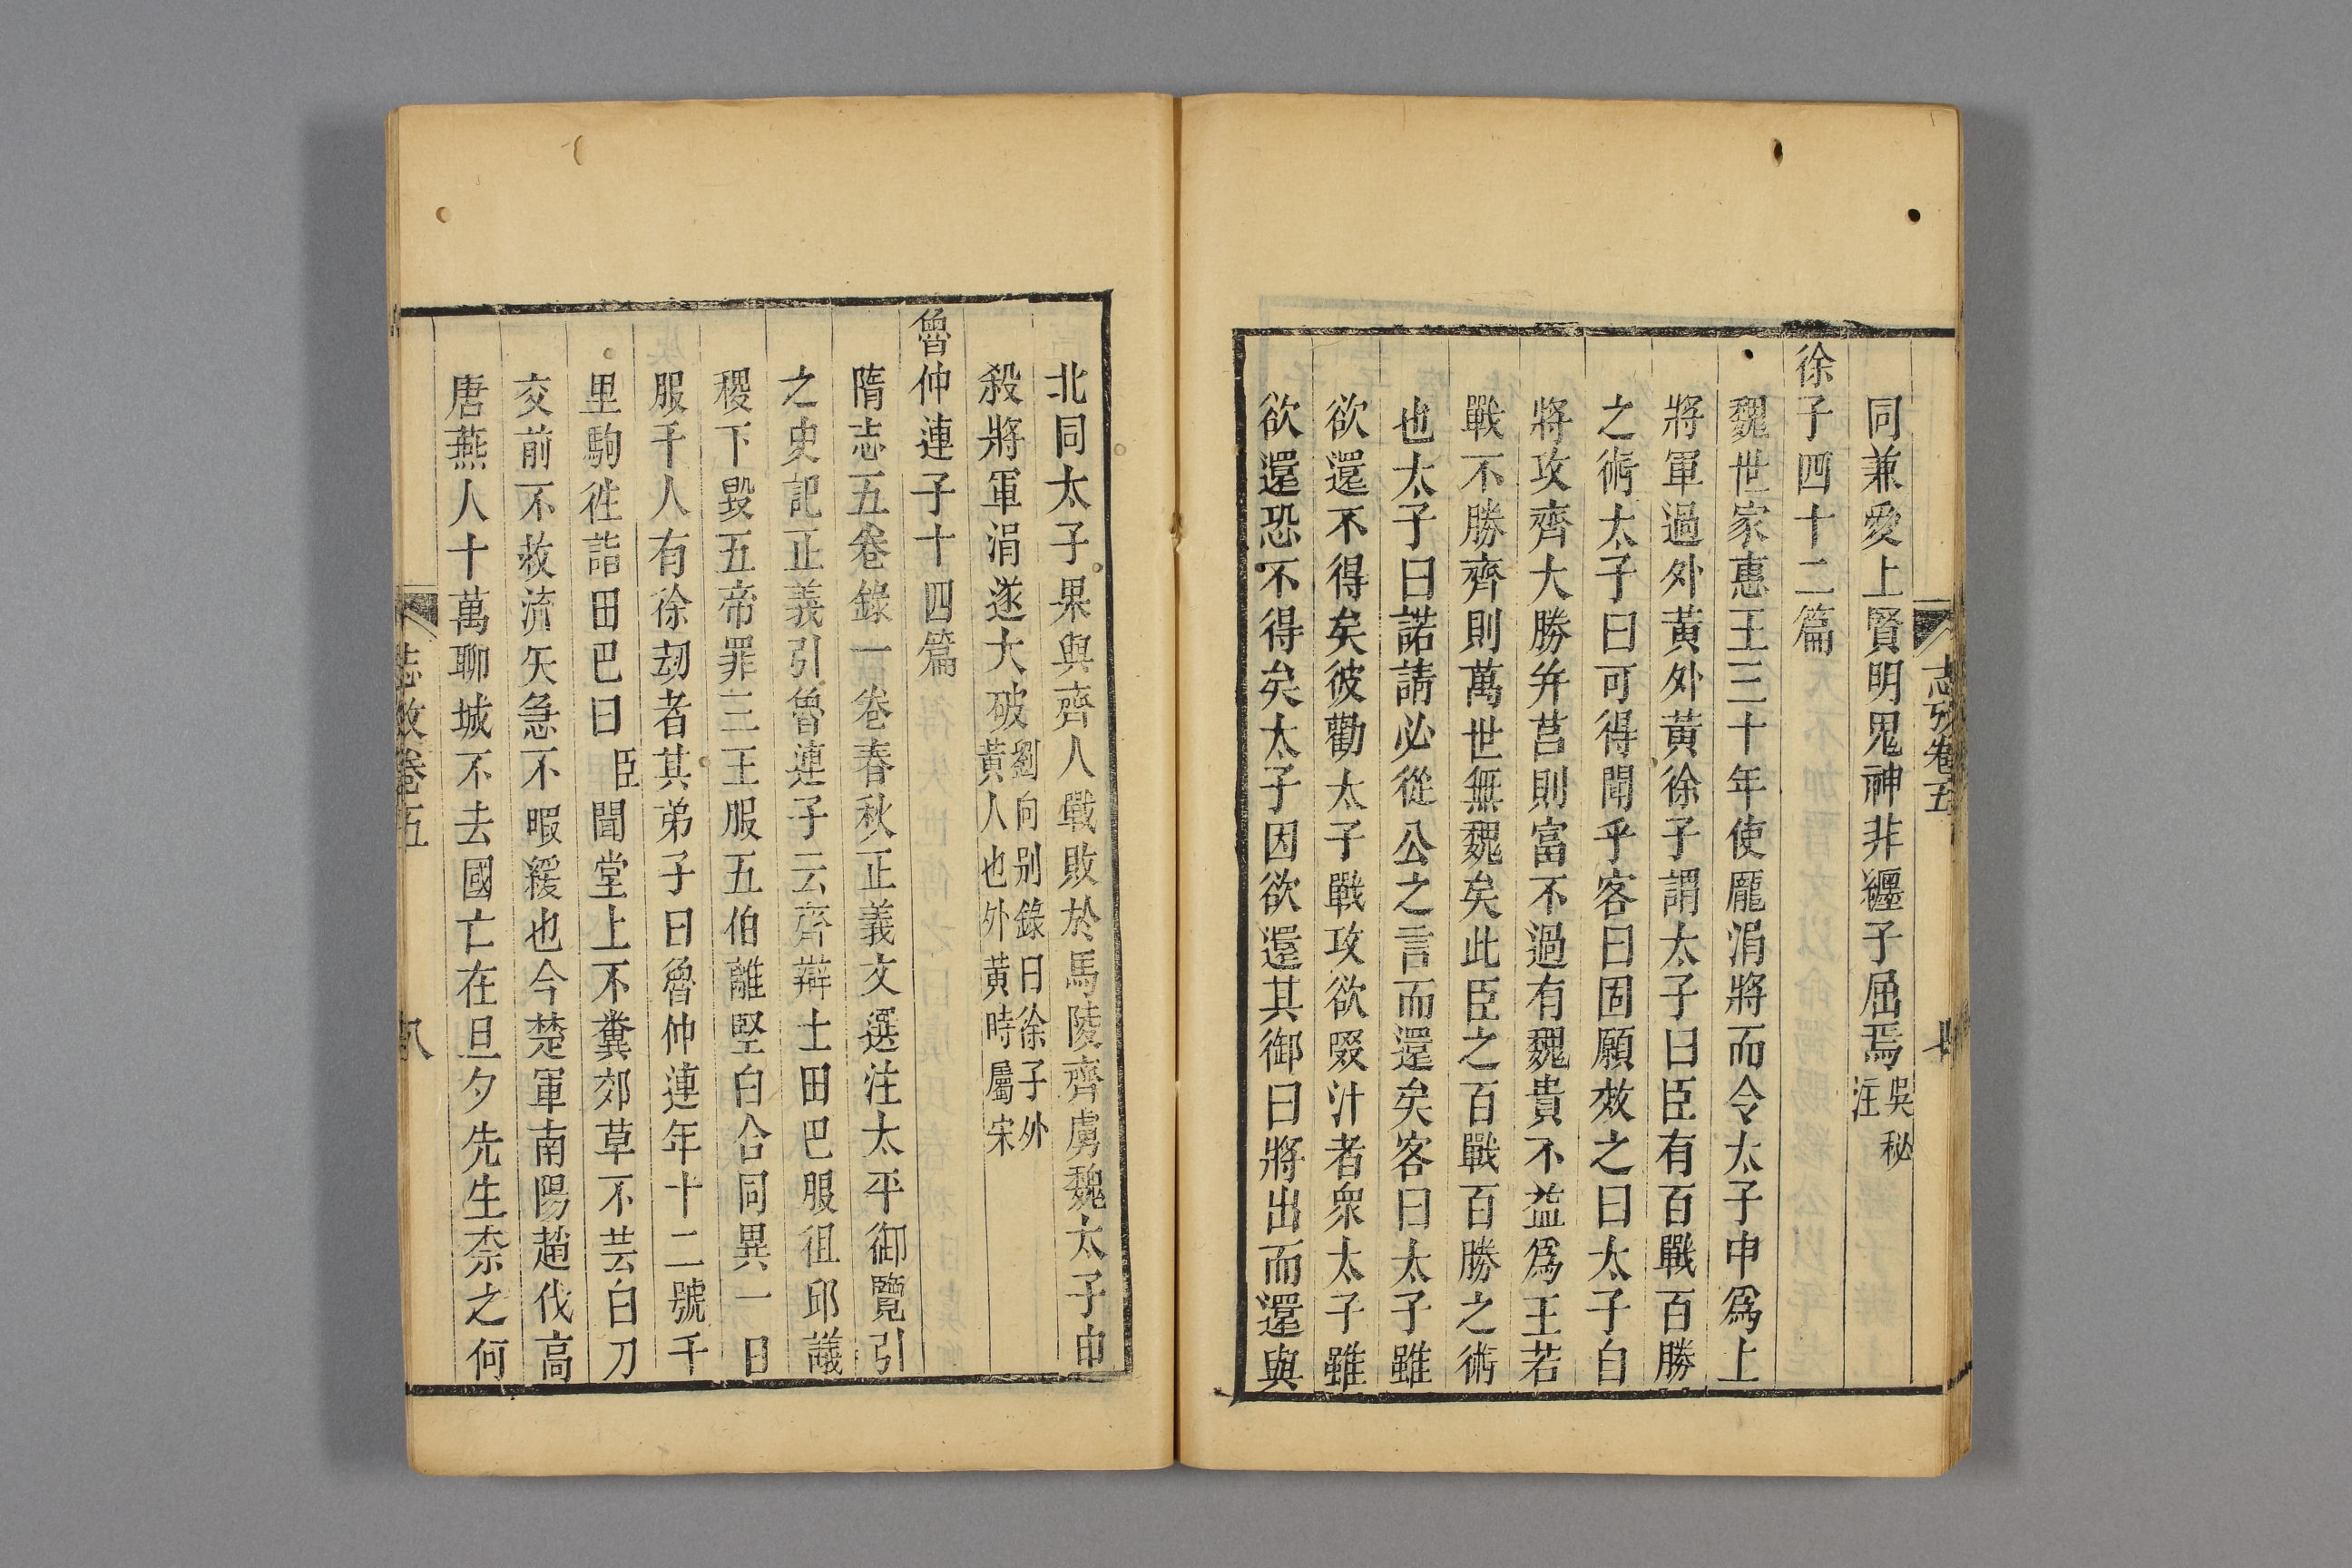 志攷卷五
同兼愛上賢明鬼神非纒子屈焉吳秘注
徐子四十二篇
魏世家惠王三十年使龐涓將而令太子申爲上
將軍過外黃外黃徐子謂太子曰臣有百戰百勝
之術太子曰可得聞乎客曰固願效之曰太子自
將攻齊大勝幷莒則富不過有魏貴不益爲王若
戰不勝齊則萬世無魏矣此臣之百戰百勝之術
也太子曰諾請必從公之言而還矣客曰太子雖
欲還不得矣彼勸太子戰攻欲啜汁者衆太子雖
欲還恐不得矣太子因欲還其御曰將出而還與
北同太子果與齊人戰敗於馬陵齊虜魏太子申
殺將軍涓遂大破劉向别錄曰徐子外黃人也外黃時屬宋
魯仲連子十四篇
隋志五卷錄一卷春秋正義文選注太平御覽引
之史記正義引魯連子云齊辯士田巴服徂邱議
稷下毀五帝罪三王服五伯離堅白合同異一日
服千人有徐劫者其弟子曰魯仲連年十二號千
里駒徃詣田巴曰臣聞堂上不糞郊草不芸白刀
交前不救流矢急不暇緩也今楚軍南陽趙伐高
唐燕人十萬聊城不去國亡在旦夕先生柰之何
志攷卷五
八